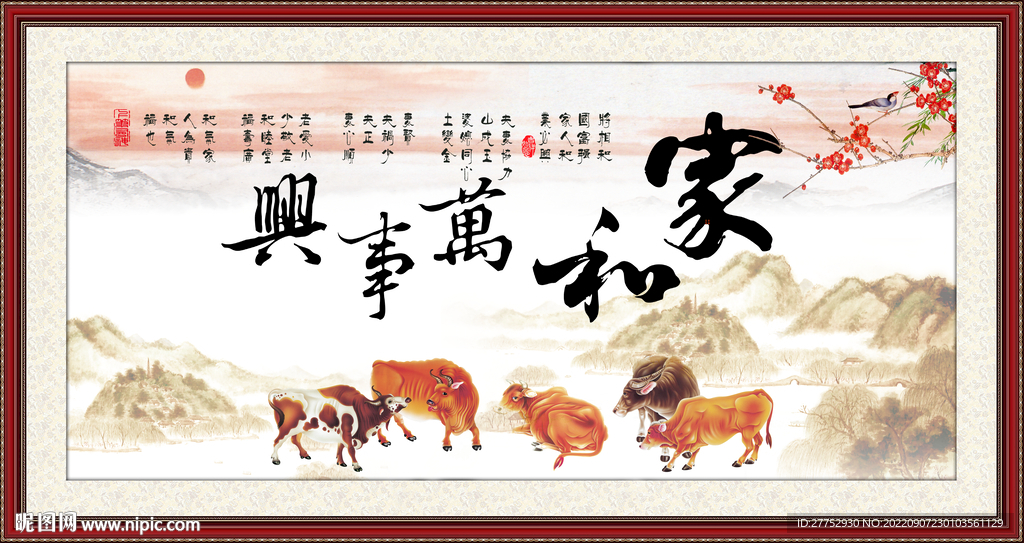 家和萬事興
將相和
國富強
家人和
業必興
夫妻協力
山成玉
婆媳同心
土變金
妻賢
夫禍少
夫正
妻必順
老愛小
少敬老
和睦堂
福壽齊
和氣家
人為貴
和氣
福也
昵图网 www.nipic.com
ID:27752930 NO:20220907230103561129